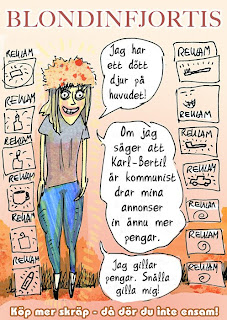 BLONDINFJORTIS
REKLAM
REKLAM
REKLAM
REKLAM
REKLAM
REKLAM
Jag har
ett dött
djur på
huvudet!
Om jag
säger att
Karl-Bertil
är kommunist
drar mina
annonser
in ännu mer
pengar.
Jag gillar
pengar. Snälla
gilla mig!
REKLAM
REKLAM
REKLAM
REKLAM
REKLAM
REKLAM
Köp mer skräp - då dör du inte ensam!